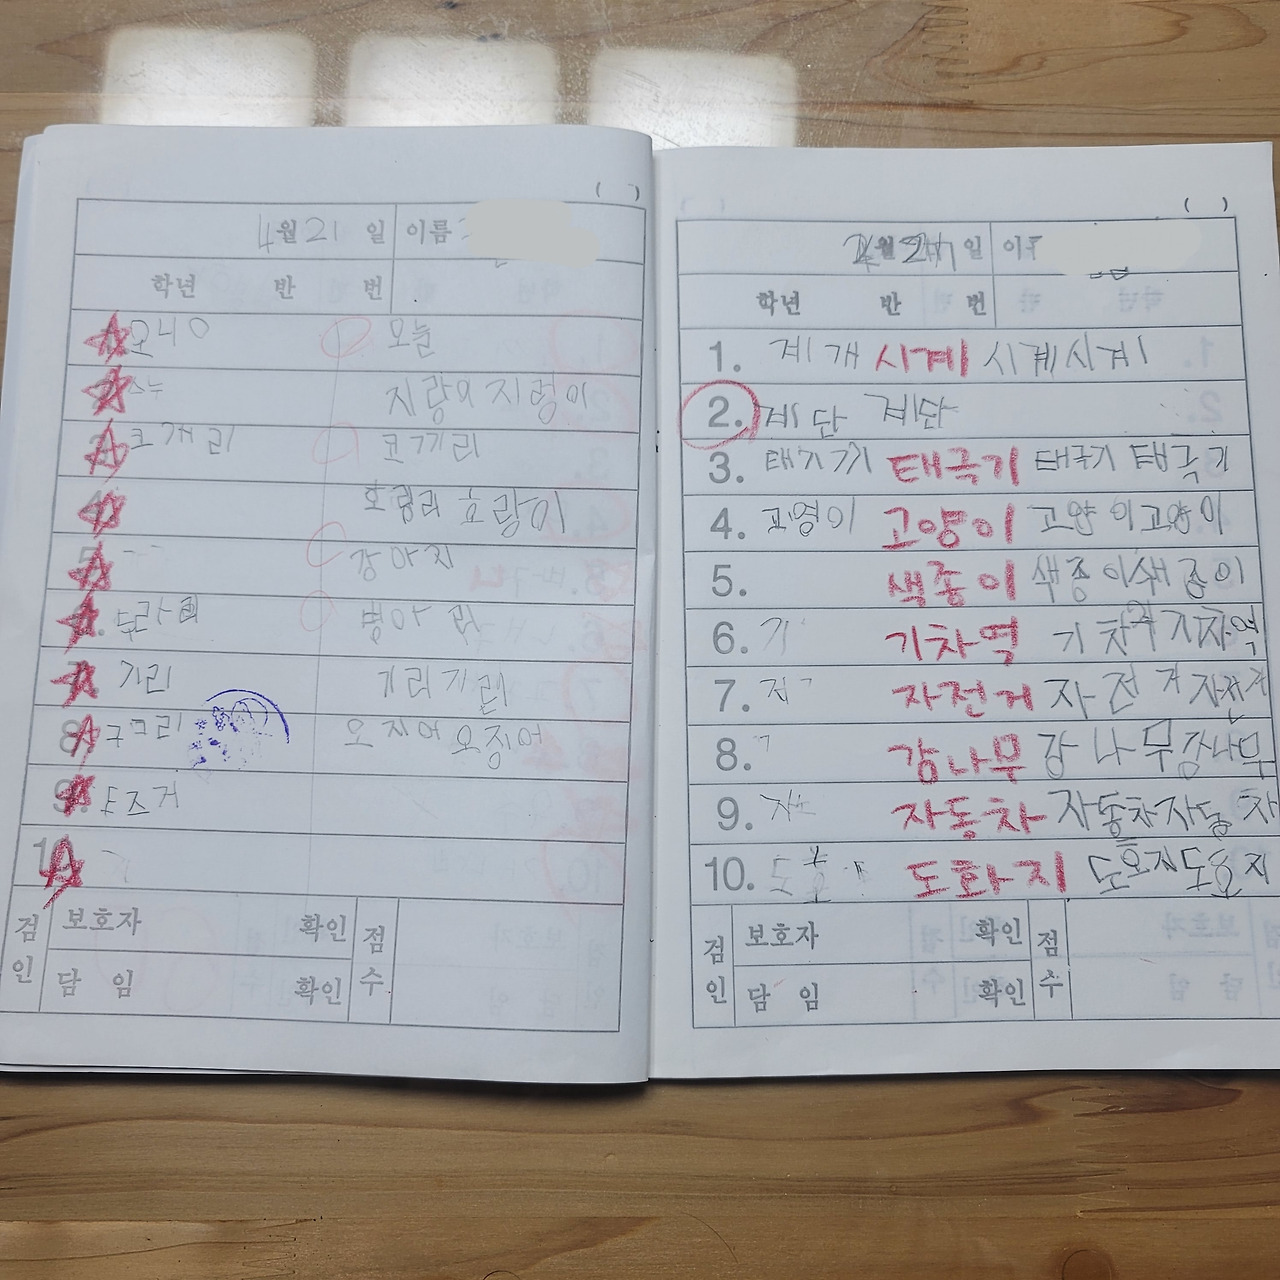 ( )
4월 21 일 이름
학년 반 번
오니ㅇ 오늘
지랑이 지렁이
코개리 코끼리
호림리 호랑이
강아지
병아리
기리 기리기린
8. 오지어 오징어
9.
검인 보호자 확인 점수
담 임 확인
( )
월 일 이름
학년 반 번
1. 계개 시계 시계시계
2. 계단 계단
3. 태기기 태극기 태극기 태극기
4. 고영이 고양이 고양이고양이
5. 색종이 색종이색종이
6. 기 기차역 기차역기차역
7. 자전거 자전거 자전거
8. 감나무 감나무감나무
9. 자동차 자동차자동차
10. 도화지 도호지도호지
검인 보호자 확인 점수
담 임 확인